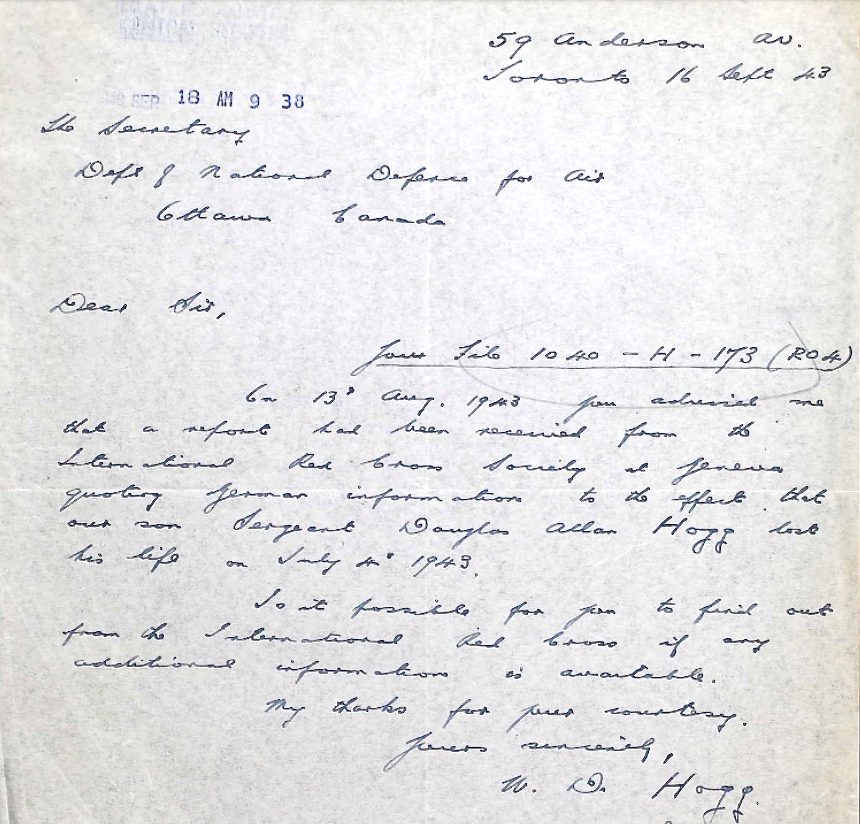 59 Anderson Av.
Toronto 16 Sept 43
SEP 18 AM 9 38
The Secretary
Dept of National Defence for Air
Ottawa Canada
Dear Sir,
Your File 1040-H-173 (RO4)
On 13th Aug. 1943 you advised me
that a report had been received from the
International Red Cross Society at Geneva
quoting German information to the effect that
our son Sergeant Douglas Allan Hogg lost
his life on July 4th 1943.
Is it possible for you to find out
from the International Red Cross if any
additional information is available.
My thanks for your courtesy.
Yours sincerely,
W. D. Hogg.